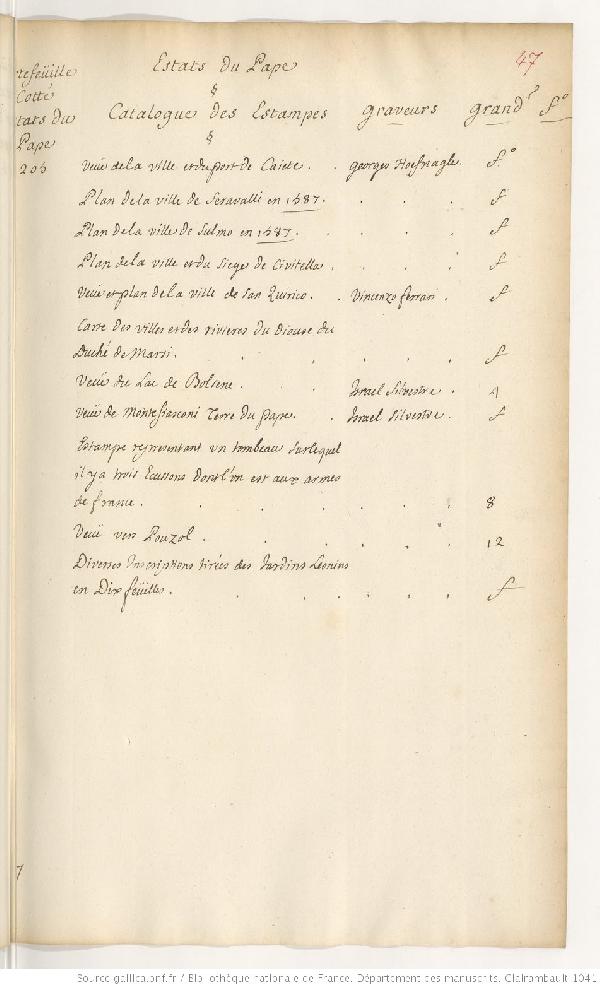 47
Estats du Pape
§
Catalogue des Estampes graveurs grand.r f.o
§
tefeüille
Cotté
tats du
Pape
205
Veüe de la ville et du port de Caiete . . georges Hoefnagle. f.o
Plan de la ville de Seravalli en 1587. . . . f
Plan de la ville de Sulmo en 1587. . . . . f
Plan de la ville et du Siege de Civitella. . . . f
Veüe et plan de la ville de San Quirico. . Vincenzo ferrari . f
Carte des villes et des rivieres du Diouse du
Duché de Marsi. . . . . f
Veüe du Lac de Bolsene. . . Israel Silvestre . 4
Veüe de Montefiasconi Terre du pape. . Israel Silvestre . f
Estampe representant un tombeau Surlequel
il y a trois Ecussons dont l'on est aux armes
de france . . . . . . 8
Veüe vers Pouzol . . . . . 12
Diverses Inscriptions tirées des Jardins Leonins
en Dix feüilles . . . . . . f
7
Source gallica.bnf.fr / Bibliothèque nationale de France. Département des manuscrits. Clairambault 1041